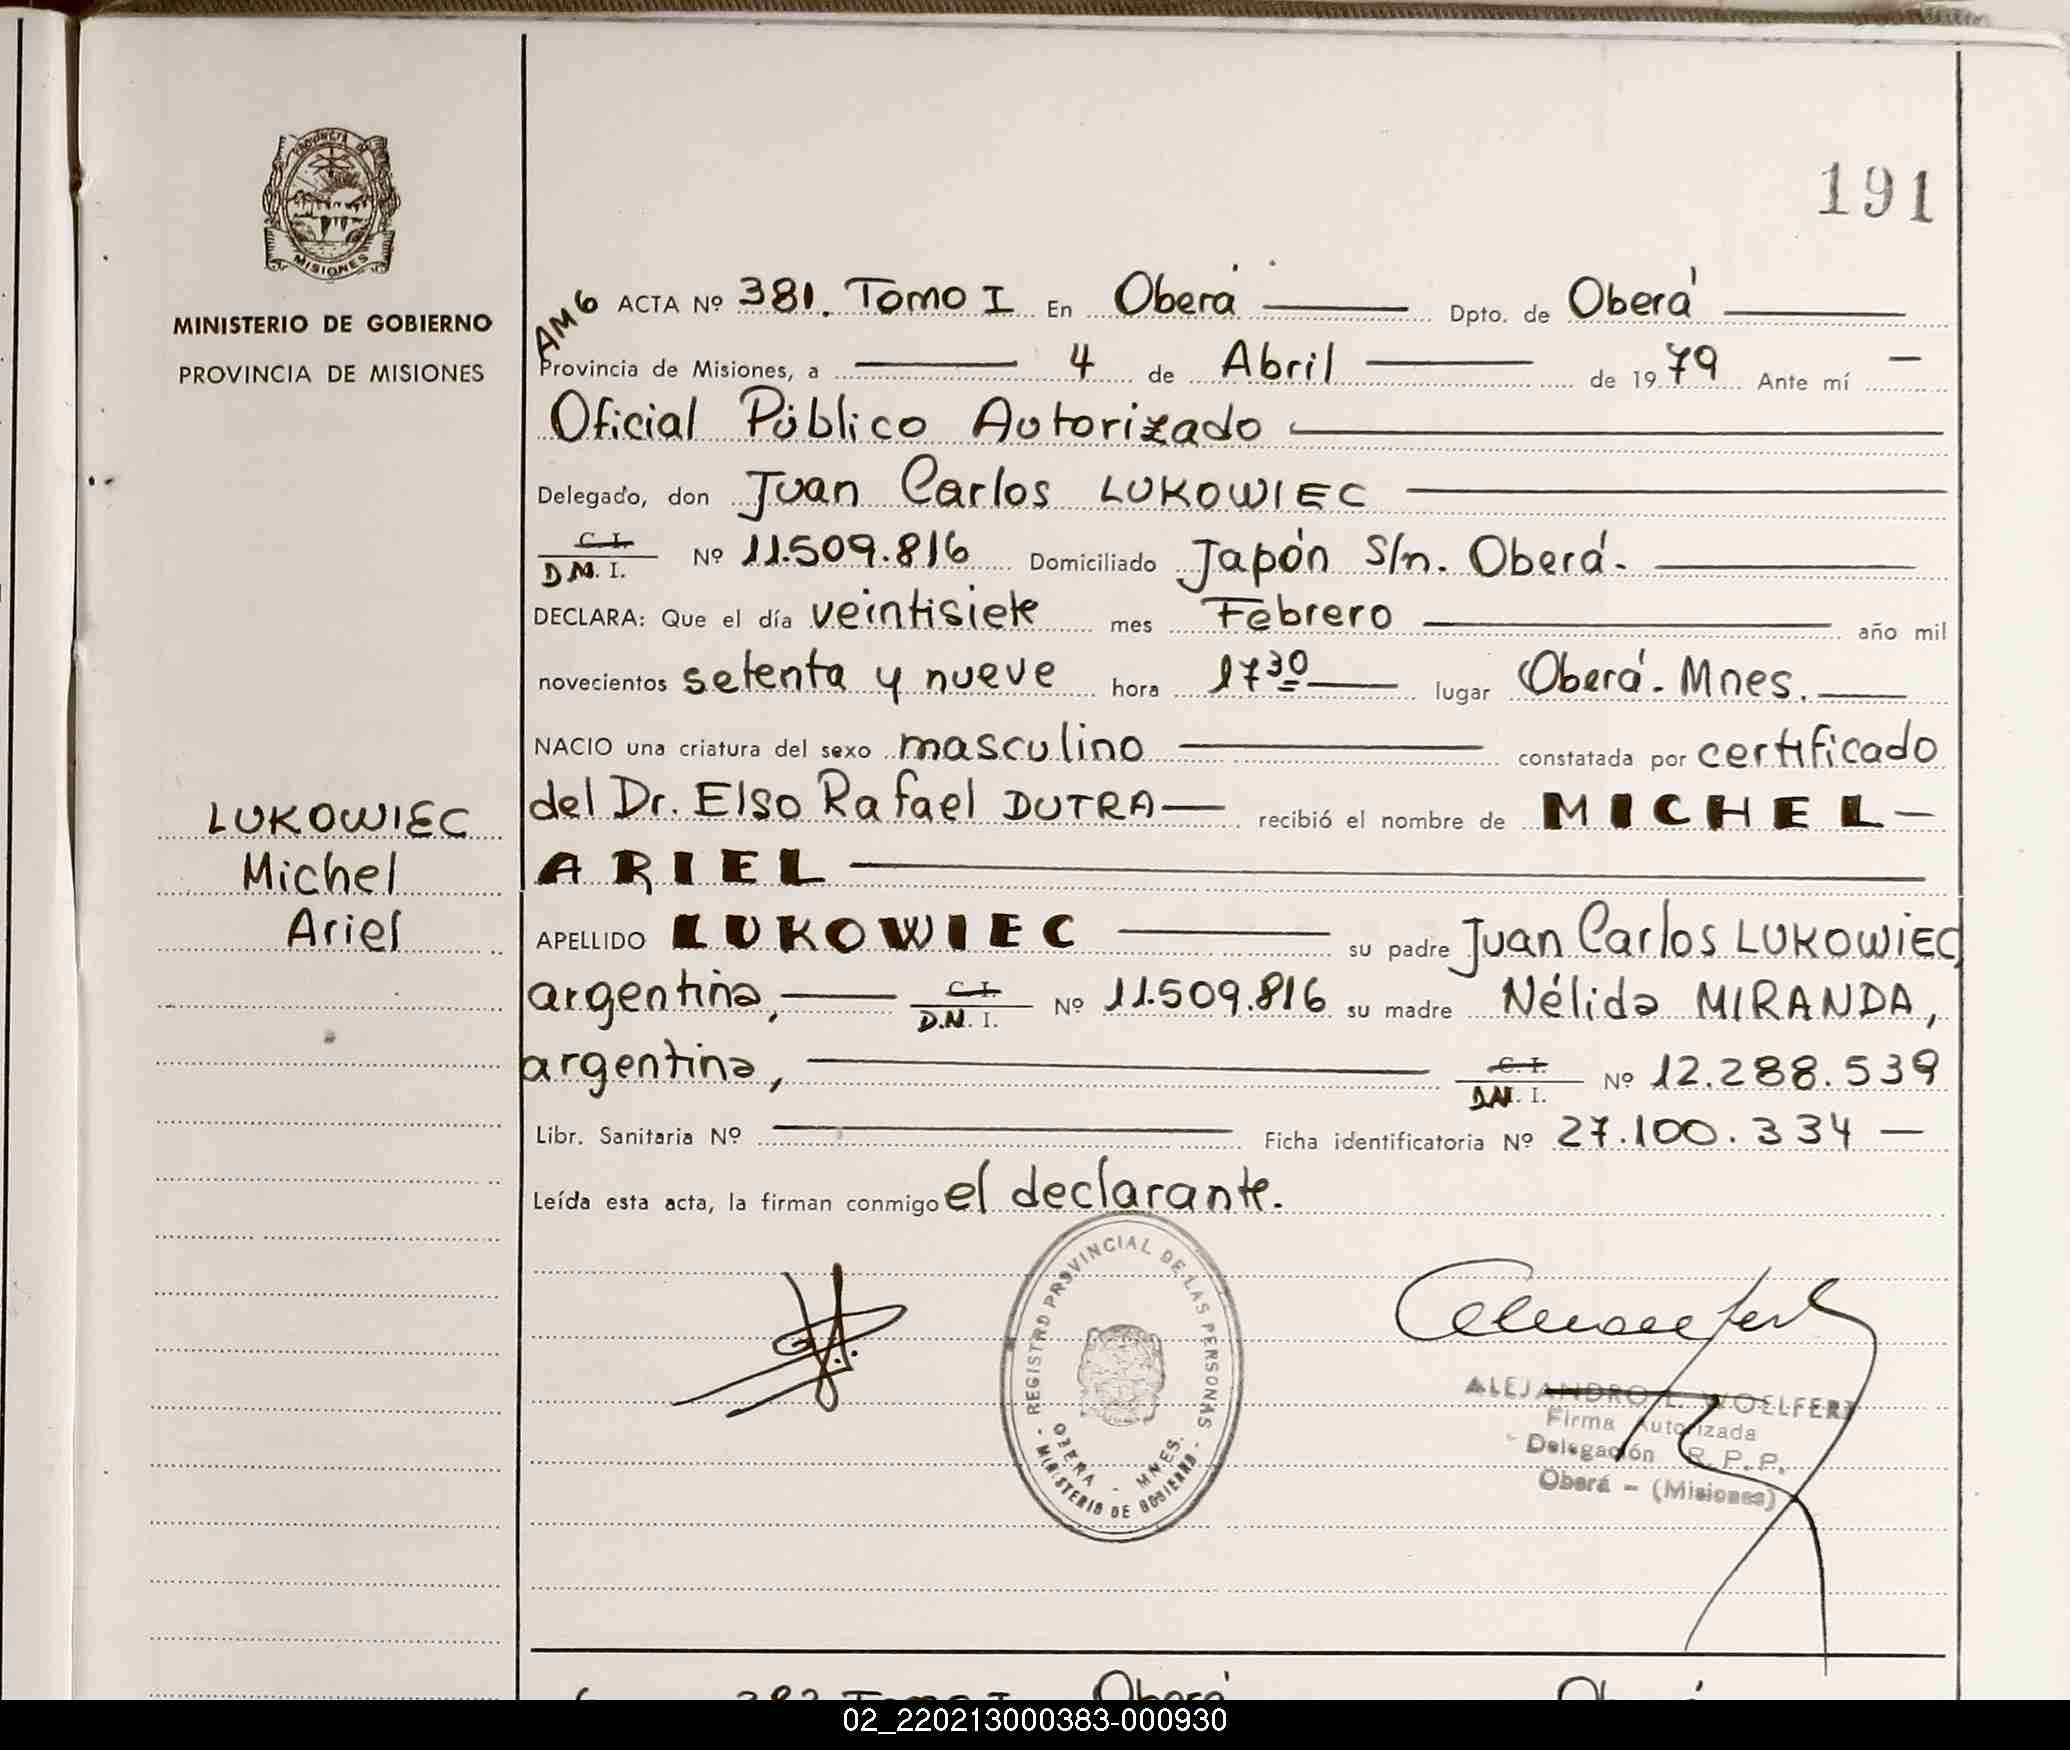 191
PROVINCIA DE
MISIONES
MINISTERIO DE GOBIERNO
PROVINCIA DE MISIONES
LUKOWIEC
Michel
Ariel
AM6 ACTA Nº 381. Tomo I En Oberá Dpto. de Oberá
Provincia de Misiones, a 4 de Abril de 1979 Ante mí
Oficial Público Autorizado
Delegado, don Juan Carlos LUKOWIEC
C. I.
D.N. I. Nº 11.509.816 Domiciliado Japón S/n. Oberá.
DECLARA: Que el día veintisiete mes Febrero año mil
novecientos setenta y nueve hora 17 30 lugar Oberá. Mnes.
NACIO una criatura del sexo masculino constatada por certificado
del Dr. Elso Rafael DUTRA recibió el nombre de MICHEL
ARIEL
APELLIDO LUKOWIEC su padre Juan Carlos LUKOWIEC,
argentina, C. I. D.N. I. Nº 11.509.816 su madre Nélida MIRANDA,
argentina, C. I. D.N. I. Nº 12.288.539
Libr. Sanitaria Nº Ficha identificatoria Nº 27.100.334
Leída esta acta, la firman conmigo el declarante.
REGISTRO PROVINCIAL DE LAS PERSONAS
OBERA - MNES.
- MINISTERIO DE GOBIERNO -
ALEJANDRO L. WOELFERT
Firma Autorizada
Delegación R. P. P.
Oberá - (Misiones)
382 Tomo I Oberá
02_220213000383-000930